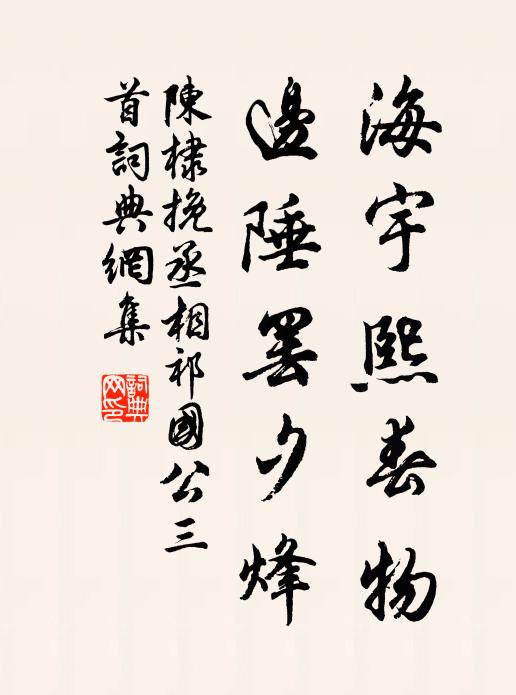 海宇熙春物
邊陲罢夕烽
陳棣挽丞相祁國公三
首詞典網集
詞典
网印